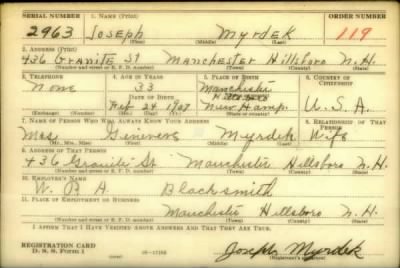 SERIAL NUMBER 1. NAME (Print) ORDER NUMBER
2963 JOSEPH MYRDEK 119
(First) (Middle) (Last)
2. ADDRESS (Print)
436 GRANITE ST MANCHESTER HILLSBORO N.H.
(Number and street or R. F. D. number) (Town) (County) (State)
3. TELEPHONE 4. AGE IN YEARS 5. PLACE OF BIRTH 6. COUNTRY OF CITIZENSHIP
None 33 Manchester
DATE OF BIRTH (Town or county)
Feb 24 1907 New Hamp. U.S.A.
(Exchange) (Number) (Mo.) (Day) (Yr.) (State or country)
7. NAME OF PERSON WHO WILL ALWAYS KNOW YOUR ADDRESS 8. RELATIONSHIP OF THAT PERSON
Mrs Genevieve Myrdek Wife
(Mr., Mrs., Miss) (First) (Middle) (Last)
9. ADDRESS OF THAT PERSON
436 Granite St. Manchester Hillsboro N.H.
(Number and street or R. F. D. number) (Town) (County) (State)
10. EMPLOYER'S NAME
W. P. A. Blacksmith
11. PLACE OF EMPLOYMENT OR BUSINESS
Manchester Hillsboro N.H.
(Number and street or R. F. D. number) (Town) (County) (State)
I AFFIRM THAT I HAVE VERIFIED ABOVE ANSWERS AND THAT THEY ARE TRUE.
REGISTRATION CARD
D. S. S. Form 1
Joseph Myrdek
(Registrant's signature)